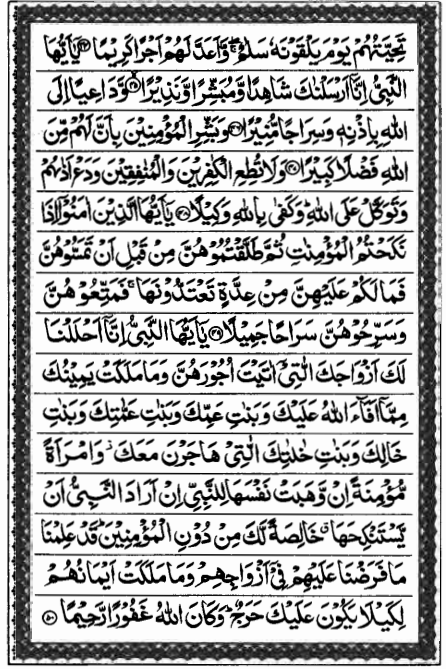 تَحِيَّتُهُمْ يَوْمَ يَلْقَوْنَهٗ سَلٰمٌ ۖۚ وَّاَعَدَّ لَهُمْ اَجْرًا كَرِيْمًا ﴿۴۴﴾ يٰۤاَيُّهَا
النَّبِيُّ اِنَّاۤ اَرْسَلْنٰكَ شَاهِدًا وَّمُبَشِّرًا وَّنَذِيْرًا ﴿۴۵﴾ وَّدَاعِيًا اِلَى
اللّٰهِ بِاِذْنِهٖ وَسِرَاجًا مُّنِيْرًا ﴿۴۶﴾ وَبَشِّرِ الْمُؤْمِنِيْنَ بِاَنَّ لَهُمْ مِّنَ
اللّٰهِ فَضْلًا كَبِيْرًا ﴿۴۷﴾ وَلَا تُطِعِ الْكٰفِرِيْنَ وَالْمُنٰفِقِيْنَ وَدَعْ اَذٰىهُمْ
وَتَوَكَّلْ عَلَى اللّٰهِ ؕ وَكَفٰى بِاللّٰهِ وَكِيْلًا ﴿۴۸﴾ يٰۤاَيُّهَا الَّذِيْنَ اٰمَنُوْۤا اِذَا
نَكَحْتُمُ الْمُؤْمِنٰتِ ثُمَّ طَلَّقْتُمُوْهُنَّ مِنْ قَبْلِ اَنْ تَمَسُّوْهُنَّ
فَمَا لَكُمْ عَلَيْهِنَّ مِنْ عِدَّةٍ تَعْتَدُّوْنَهَا ۚ فَمَتِّعُوْهُنَّ
وَسَرِّحُوْهُنَّ سَرَاحًا جَمِيْلًا ﴿۴۹﴾ يٰۤاَيُّهَا النَّبِيُّ اِنَّاۤ اَحْلَلْنَا
لَكَ اَزْوَاجَكَ الّٰتِيْۤ اٰتَيْتَ اُجُوْرَهُنَّ وَمَا مَلَكَتْ يَمِيْنُكَ
مِمَّاۤ اَفَآءَ اللّٰهُ عَلَيْكَ وَبَنٰتِ عَمِّكَ وَبَنٰتِ عَمّٰتِكَ وَبَنٰتِ
خَالِكَ وَبَنٰتِ خٰلٰتِكَ الّٰتِيْ هَاجَرْنَ مَعَكَ ؗ وَامْرَاَةً
مُّؤْمِنَةً اِنْ وَّهَبَتْ نَفْسَهَا لِلنَّبِيِّ اِنْ اَرَادَ النَّبِيُّ اَنْ
يَّسْتَنْكِحَهَا ۗ خَالِصَةً لَّكَ مِنْ دُوْنِ الْمُؤْمِنِيْنَ ؕ قَدْ عَلِمْنَا
مَا فَرَضْنَا عَلَيْهِمْ فِيْۤ اَزْوَاجِهِمْ وَمَا مَلَكَتْ اَيْمَانُهُمْ
لِكَيْلَا يَكُوْنَ عَلَيْكَ حَرَجٌ ؕ وَكَانَ اللّٰهُ غَفُوْرًا رَّحِيْمًا ﴿۵۰﴾